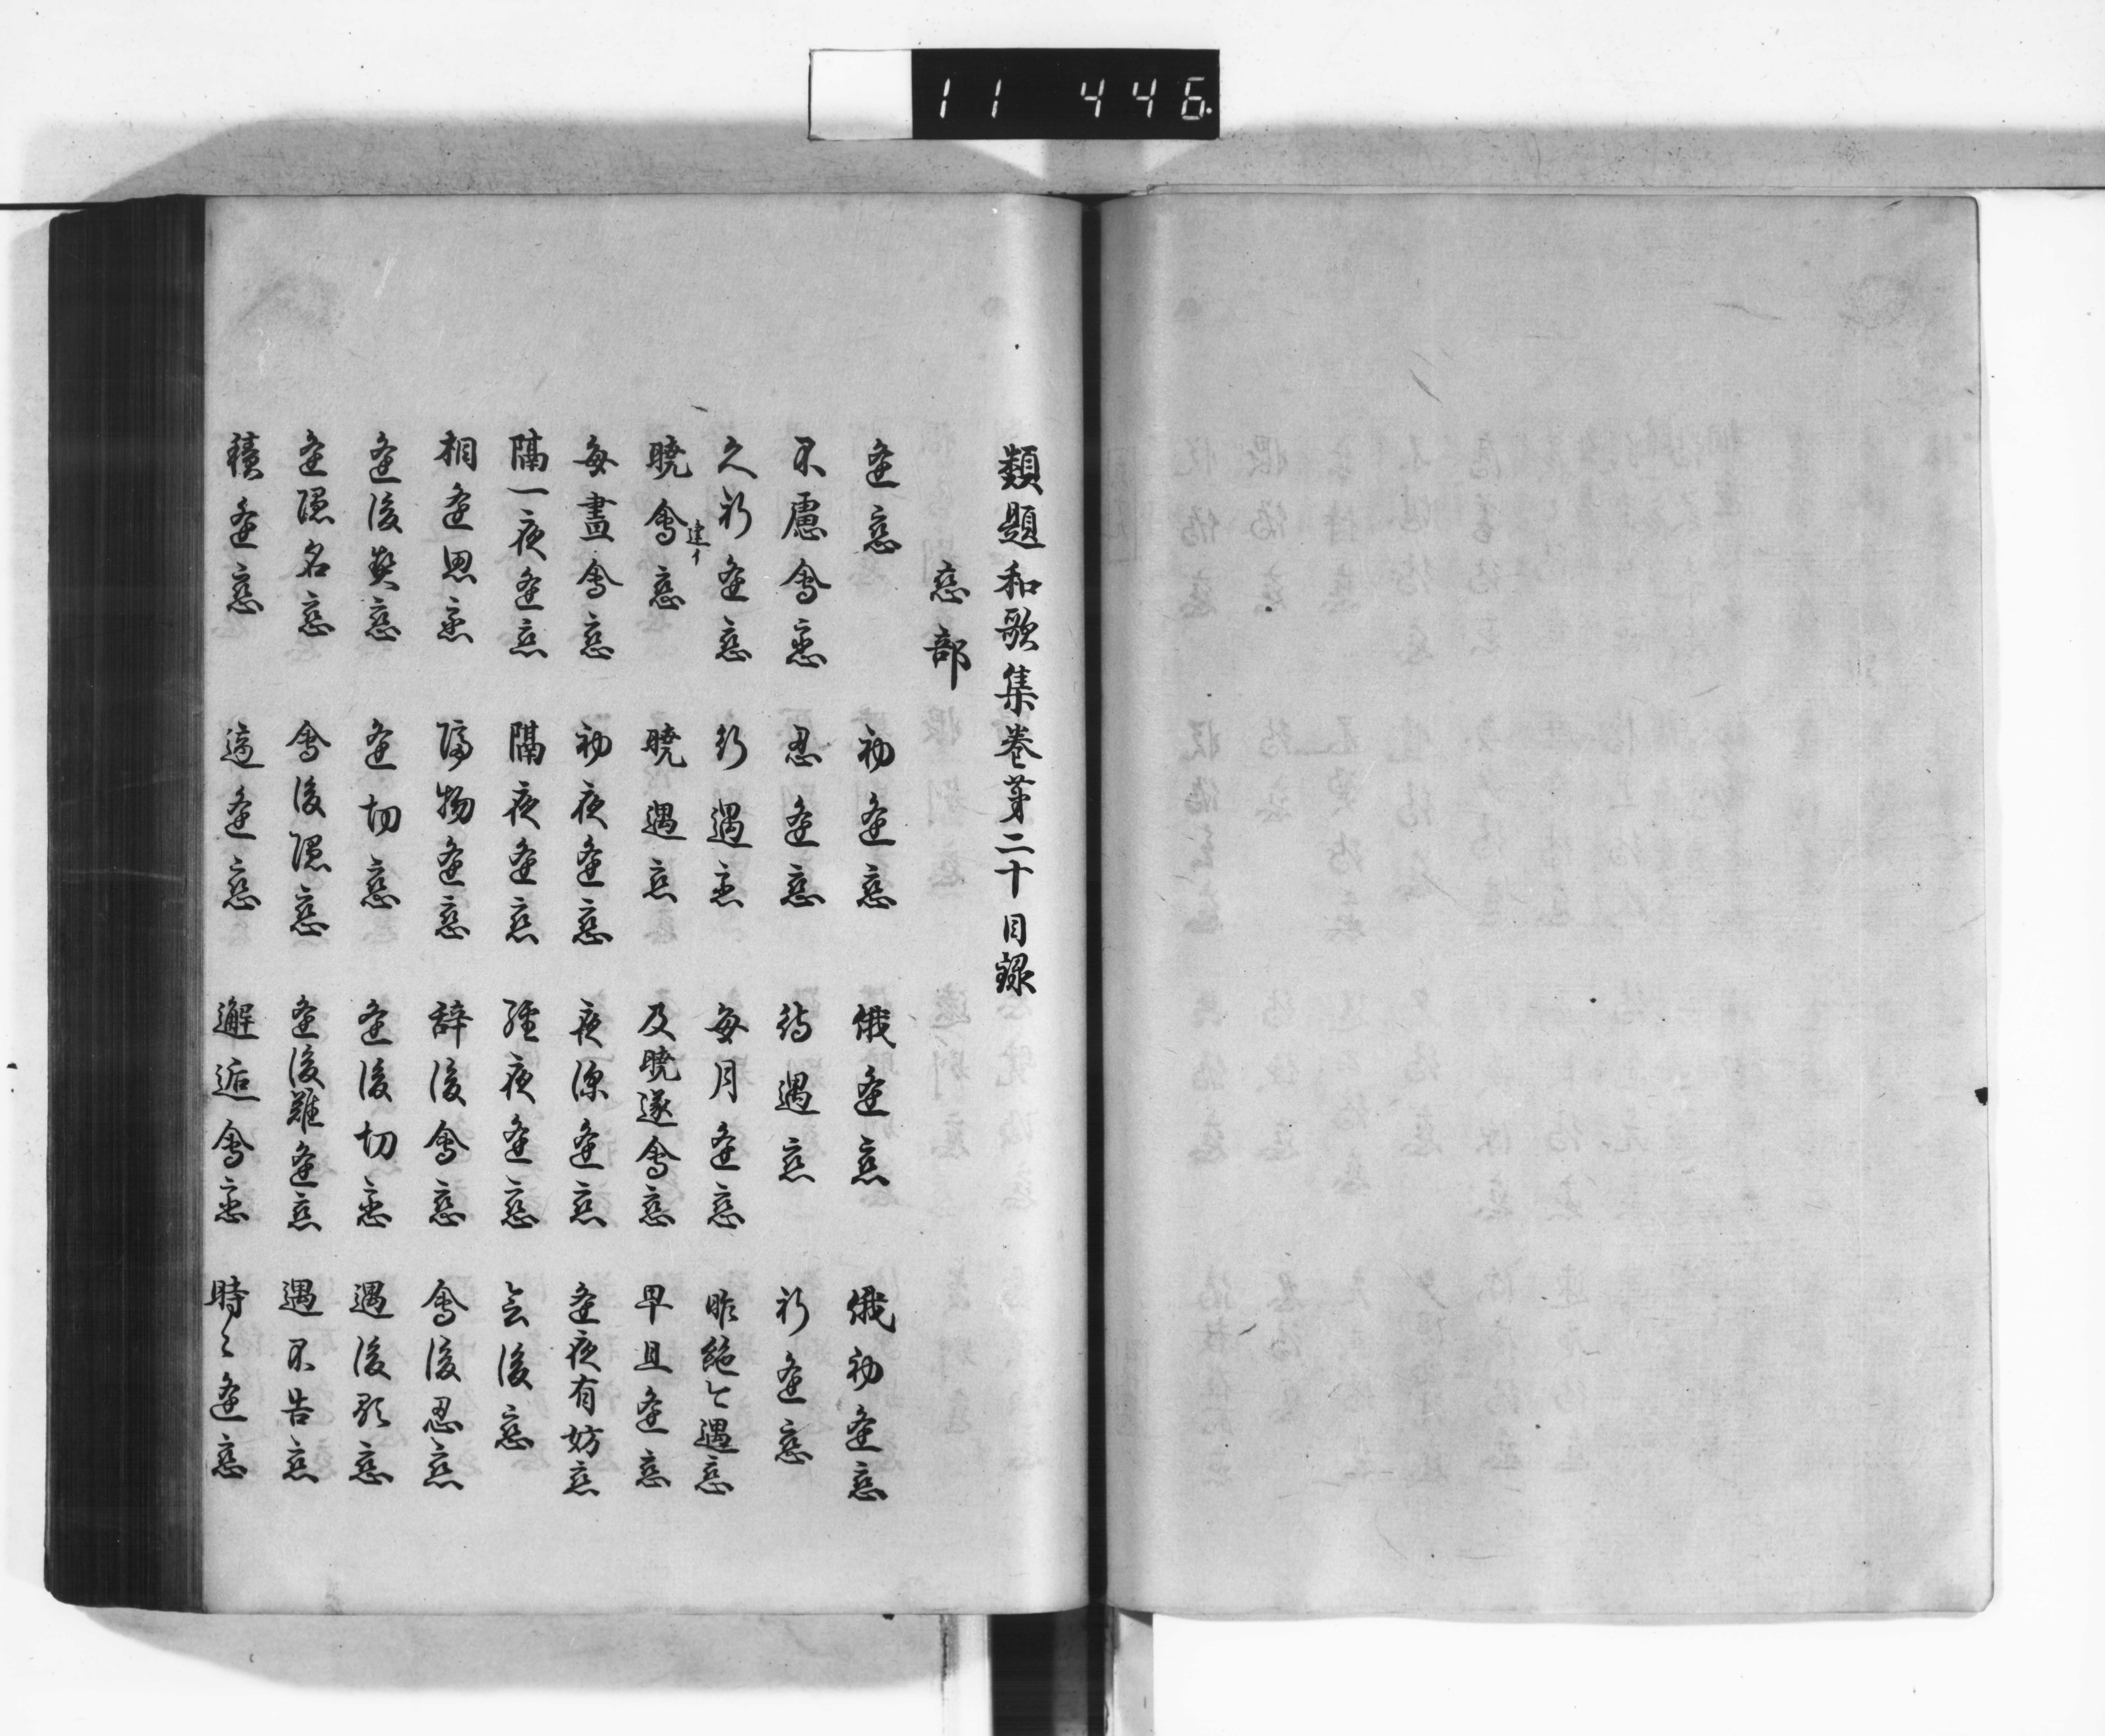 11 446.
類題和歌集巻第二十目録
恋部
逢恋 初逢恋 俄逢恋 俄初逢恋
不慮會恋 忍逢恋 待遇恋 祈逢恋
久祈逢恋 祈遇恋 毎月逢恋 昨絶今遇恋
暁會恋 暁遇恋 及暁遂會恋 早旦逢恋
毎晝會恋 初夜逢恋 夜深逢恋 逢夜有妨恋
隔一夜逢恋 隔夜逢恋 経夜逢恋 会後恋
相逢思恋 隔物逢恋 辞後會恋 會後忍恋
逢後契恋 逢切恋 逢後切恋 遇後顕恋
逢隠名恋 會後隠恋 逢後難逢恋 遇不告恋
積逢恋 適逢恋 邂逅會恋 時〻逢恋